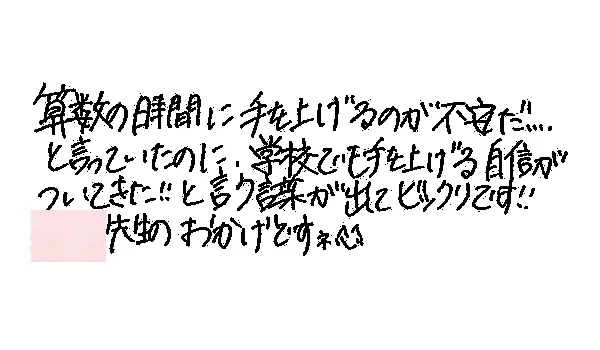 算数の時間に手を上げるのが不安だ…
と言っていたのに、学校でも手を上げる自信が
ついてきた!!と言う言葉が出てビックリです!!
先生のおかげですネ